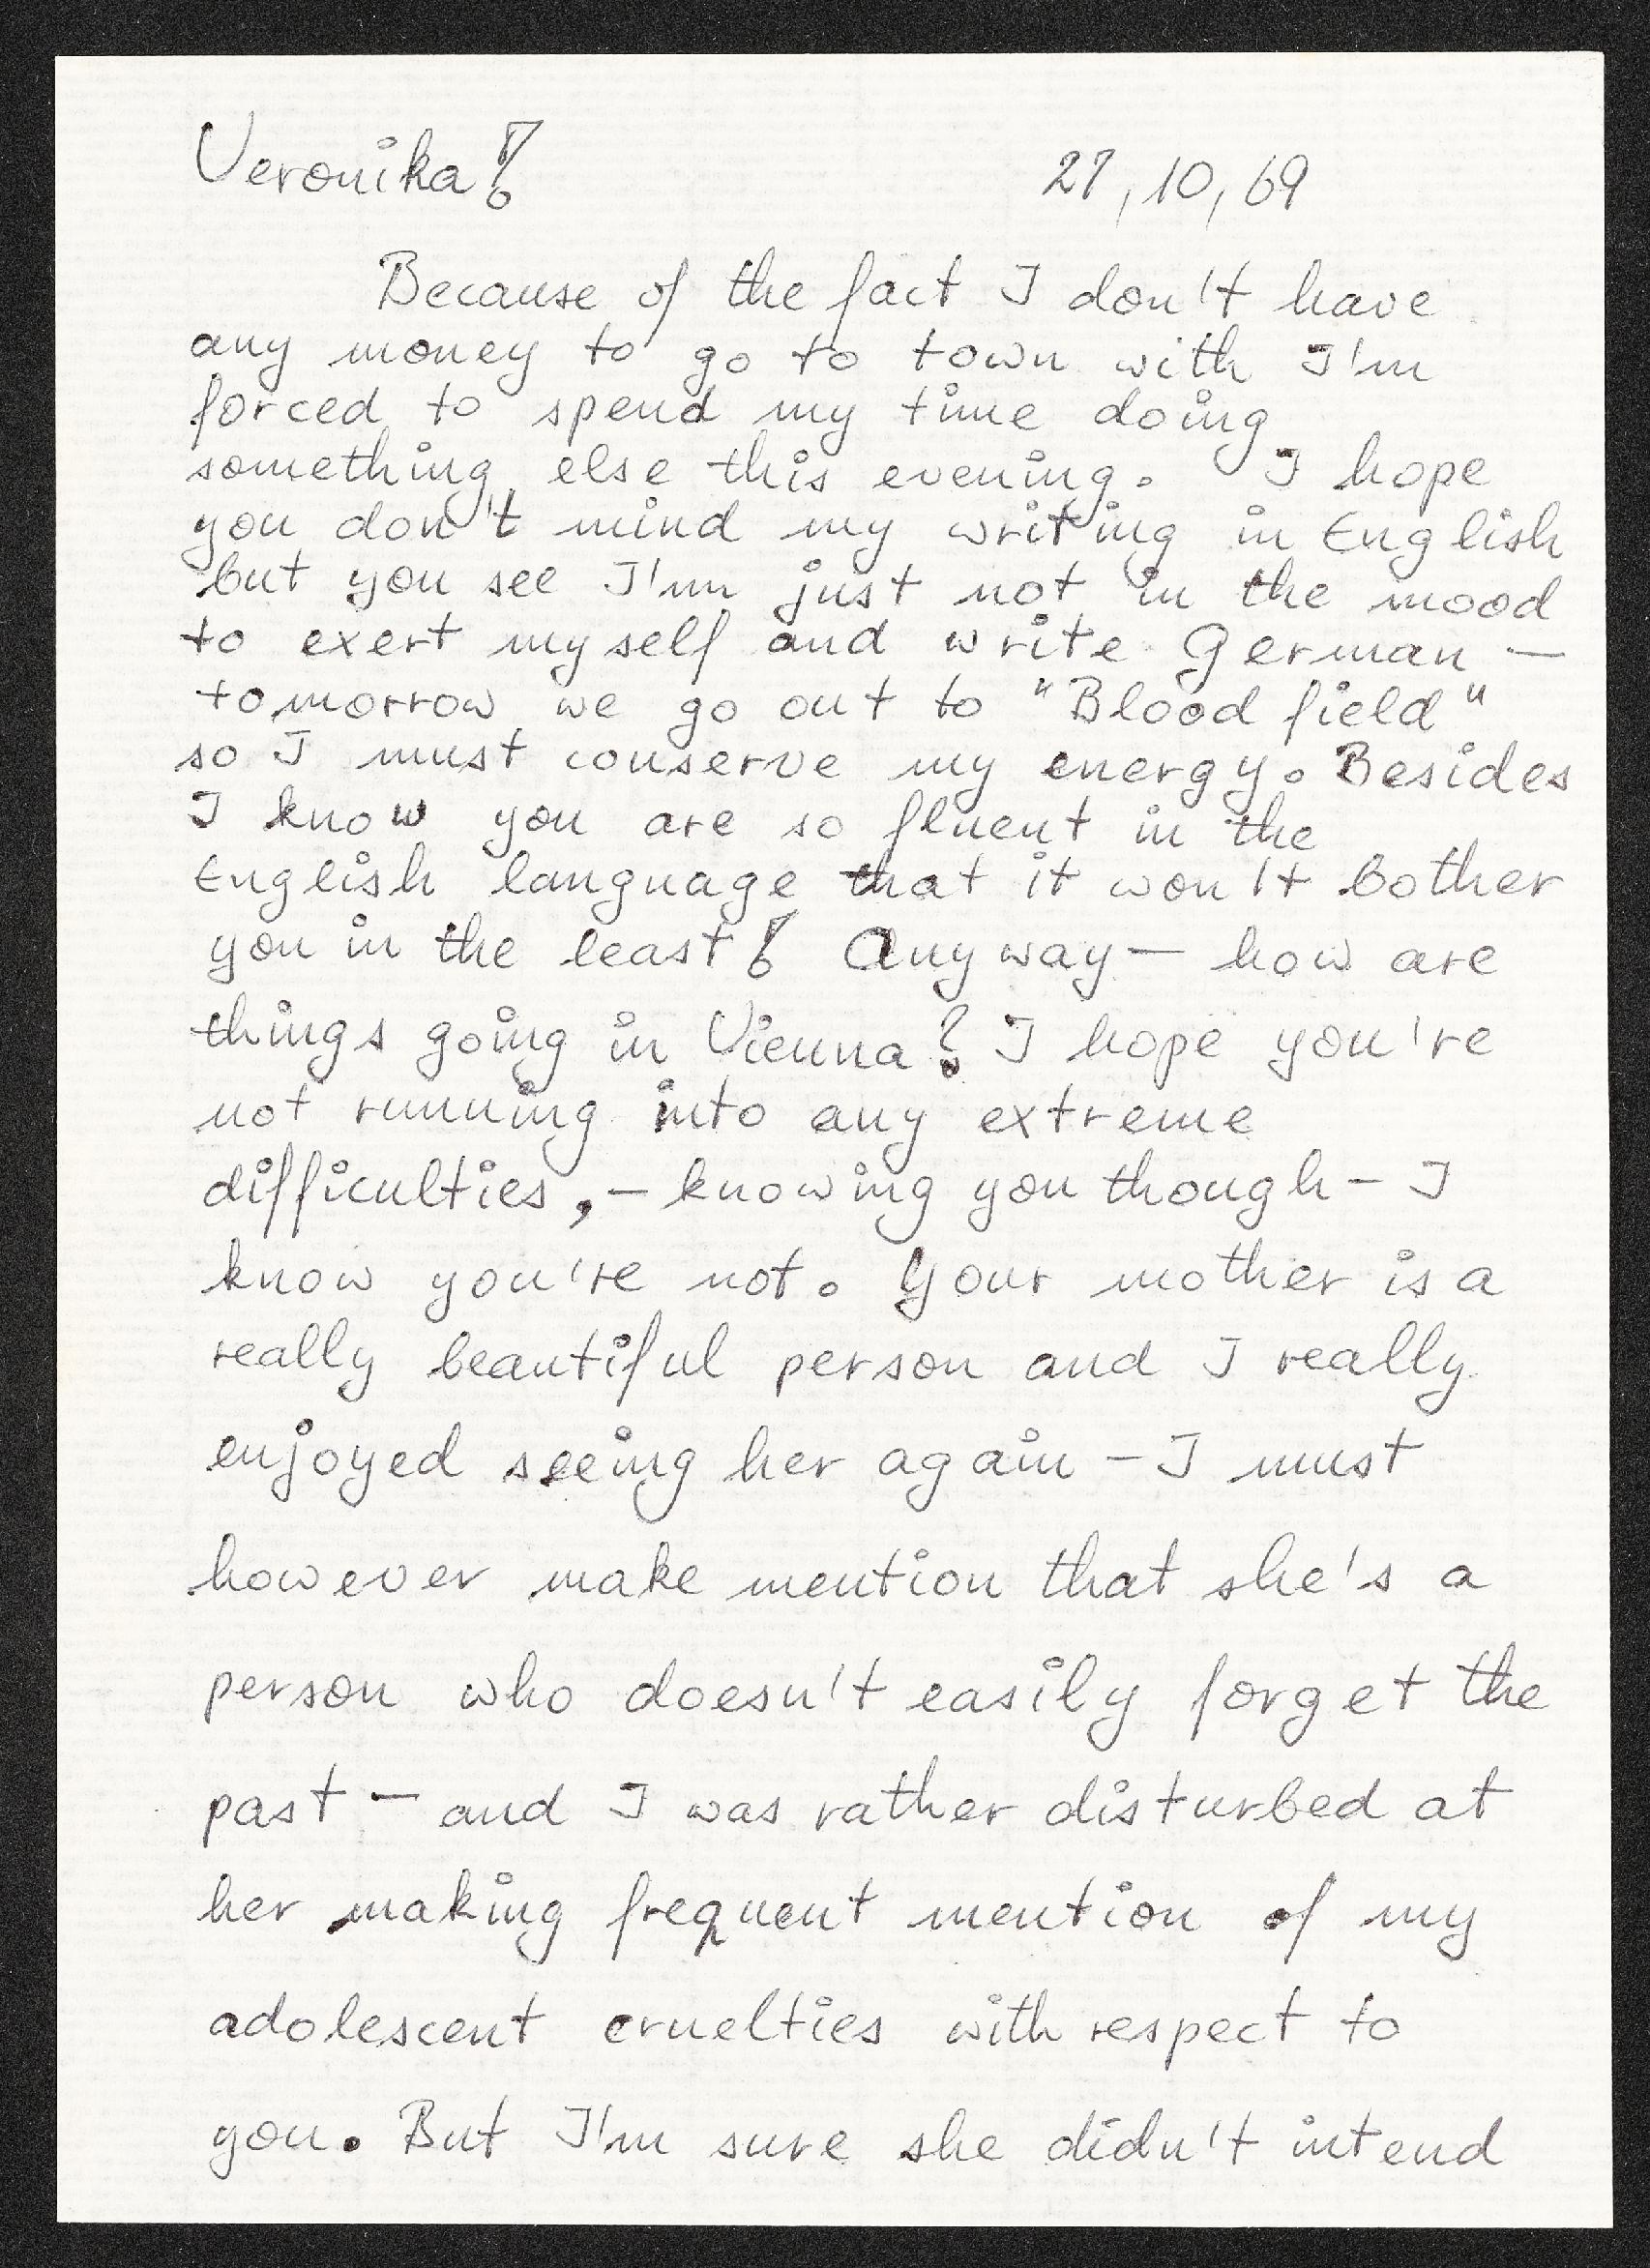 Veronika!
27,10,69
Because of the fact I don't have
any money to go to town with I'm
forced to spend my time doing
something else this evening. I hope
you don't mind my writing in English
but you see I'm just not in the mood
to exert myself and write German —
tomorrow we go out to "Blood field"
so I must conserve my energy. Besides
I know you are so fluent in the
English language that it won't bother
you in the least! Anyway — how are
things going in Vienna? I hope you're
not running into any extreme
difficulties, — knowing you though — I
know you're not. Your mother is a
really beautiful person and I really
enjoyed seeing her again — I must
however make mention that she's a
person who doesn't easily forget the
past — and I was rather disturbed at
her making frequent mention of my
adolescent cruelties with respect to
you. But I'm sure she didn't intend